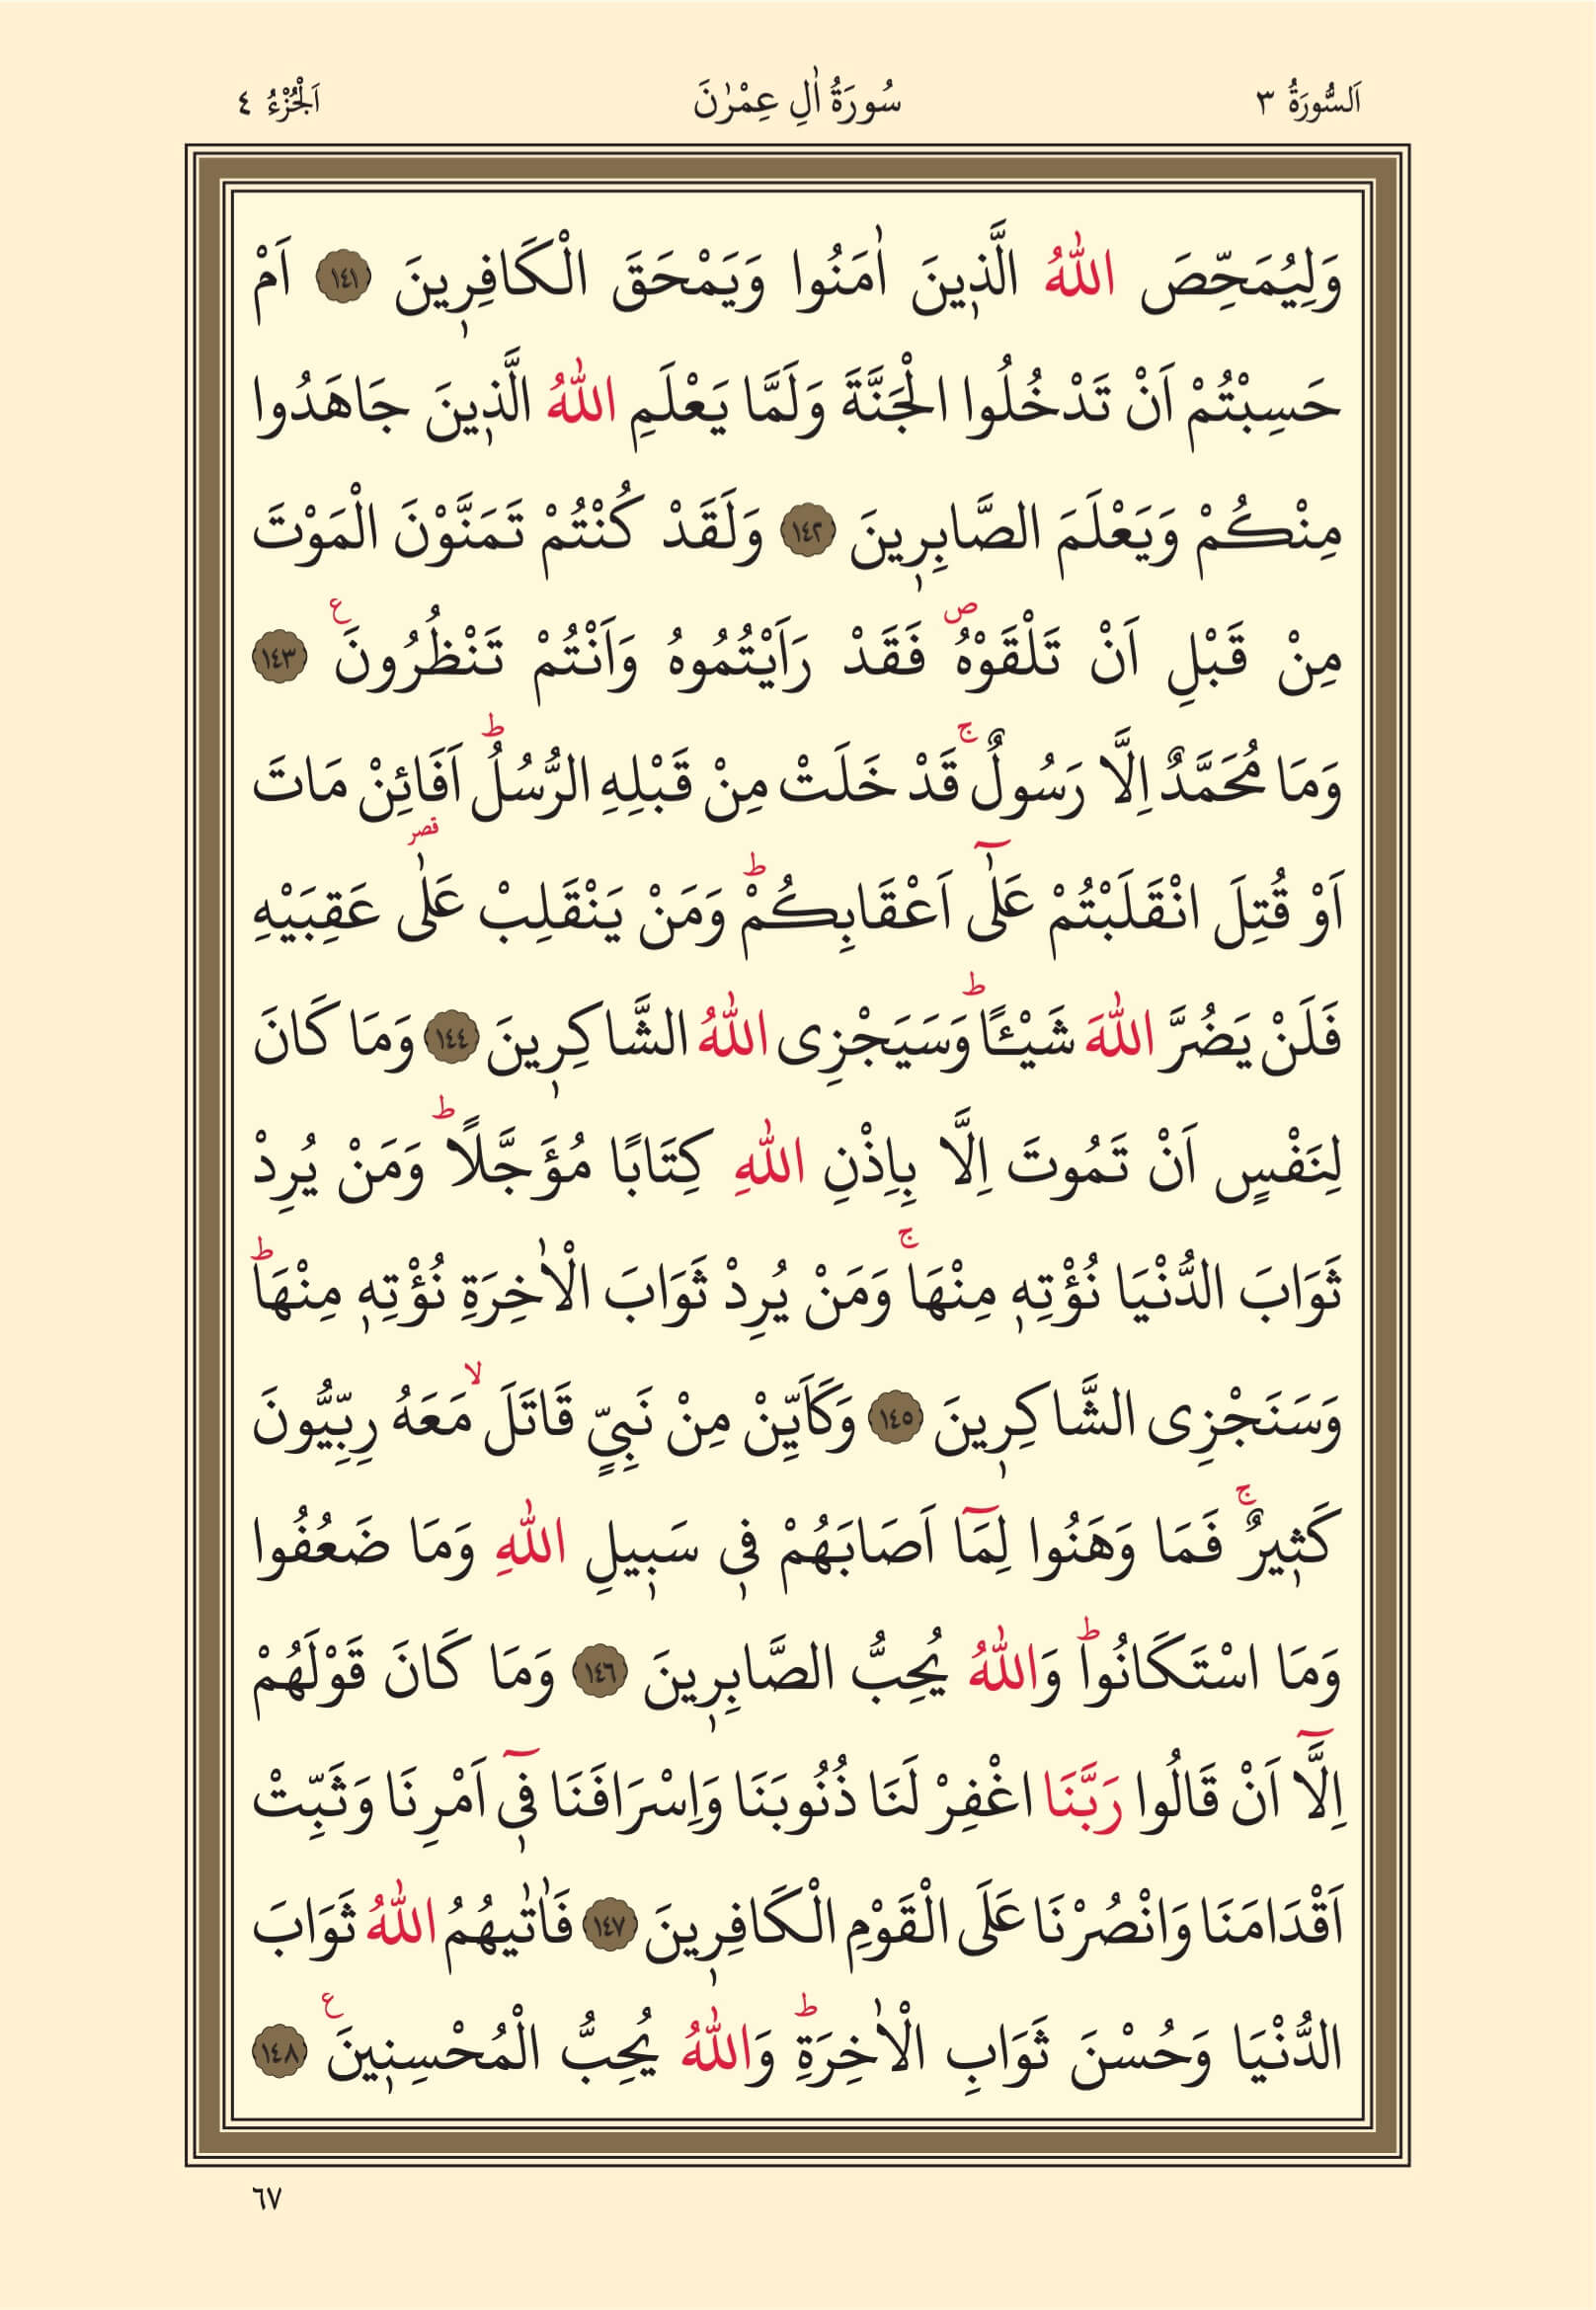 اَلسُّورَةُ ٣ سُورَةُ اٰلِ عِمْرٰنَ اَلْجُزْءُ ٤
وَلِيُمَحِّصَ اللّٰهُ الَّذ۪ينَ اٰمَنُوا وَيَمْحَقَ الْكَافِر۪ينَ ﴿١٤١﴾ اَمْ
حَسِبْتُمْ اَنْ تَدْخُلُوا الْجَنَّةَ وَلَمَّا يَعْلَمِ اللّٰهُ الَّذ۪ينَ جَاهَدُوا
مِنْكُمْ وَيَعْلَمَ الصَّابِر۪ينَ ﴿١٤٢﴾ وَلَقَدْ كُنْتُمْ تَمَنَّوْنَ الْمَوْتَ
مِنْ قَبْلِ اَنْ تَلْقَوْهُۖ فَقَدْ رَاَيْتُمُوهُ وَاَنْتُمْ تَنْظُرُونَ ع ﴿١٤٣﴾
وَمَا مُحَمَّدٌ اِلَّا رَسُولٌۚ قَدْ خَلَتْ مِنْ قَبْلِهِ الرُّسُلُۜ اَفَائِنْ مَاتَ
اَوْ قُتِلَ انْقَلَبْتُمْ عَلٰٓى اَعْقَابِكُمْۜ وَمَنْ يَنْقَلِبْ عَلٰى قصر عَقِبَيْهِ
فَلَنْ يَضُرَّ اللّٰهَ شَيْـًٔاۜ وَسَيَجْزِى اللّٰهُ الشَّاكِر۪ينَ ﴿١٤٤﴾ وَمَا كَانَ
لِنَفْسٍ اَنْ تَمُوتَ اِلَّا بِاِذْنِ اللّٰهِ كِتَابًا مُؤَجَّلًاۜ وَمَنْ يُرِدْ
ثَوَابَ الدُّنْيَا نُؤْتِه۪ مِنْهَاۚ وَمَنْ يُرِدْ ثَوَابَ الْاٰخِرَةِ نُؤْتِه۪ مِنْهَاۜ
وَسَنَجْزِى الشَّاكِر۪ينَ ﴿١٤٥﴾ وَكَاَيِّنْ مِنْ نَبِيٍّ قَاتَلَۙ مَعَهُ رِبِّيُّونَ
كَث۪يرٌۚ فَمَا وَهَنُوا لِمَٓا اَصَابَهُمْ ف۪ى سَب۪يلِ اللّٰهِ وَمَا ضَعُفُوا
وَمَا اسْتَكَانُواۜ وَاللّٰهُ يُحِبُّ الصَّابِر۪ينَ ﴿١٤٦﴾ وَمَا كَانَ قَوْلَهُمْ
اِلَّٓا اَنْ قَالُوا رَبَّنَا اغْفِرْ لَنَا ذُنُوبَنَا وَاِسْرَافَنَا ف۪ٓى اَمْرِنَا وَثَبِّتْ
اَقْدَامَنَا وَانْصُرْنَا عَلَى الْقَوْمِ الْكَافِر۪ينَ ﴿١٤٧﴾ فَاٰتٰيهُمُ اللّٰهُ ثَوَابَ
الدُّنْيَا وَحُسْنَ ثَوَابِ الْاٰخِرَةِۜ وَاللّٰهُ يُحِبُّ الْمُحْسِن۪ينَ ع ﴿١٤٨﴾
٦٧